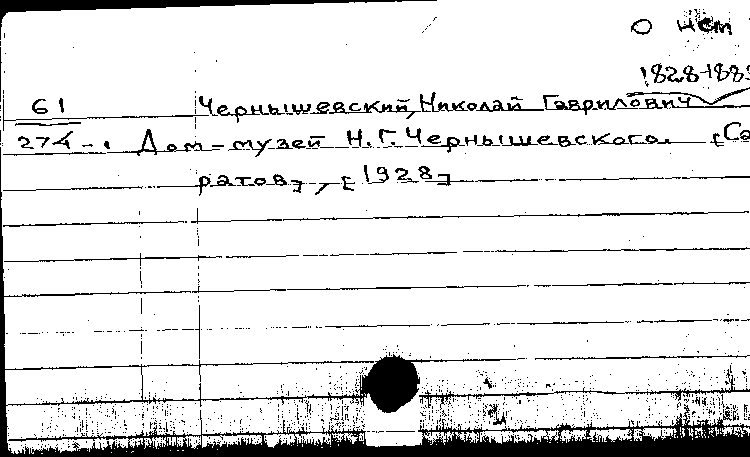 О нем
1828-188
61 Чернышевский, Николай Гаврилович
274-. Дом-музей Н.Г. Чернышевского. [Са
ратов], [1928]